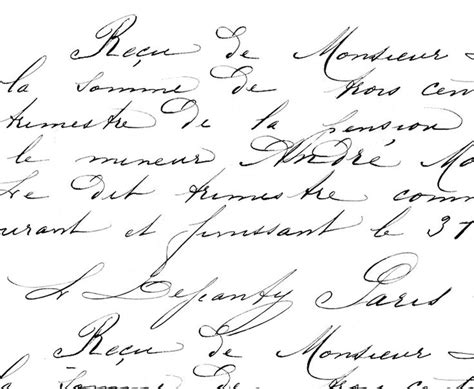 Reçu de Monsieur
la somme de trois cen
trimestre de la pension
le mineur André Mo
Le dit trimestre comm
ourant et finissant le 31
Paris
Reçu de Monsieur
la somme de trois cen